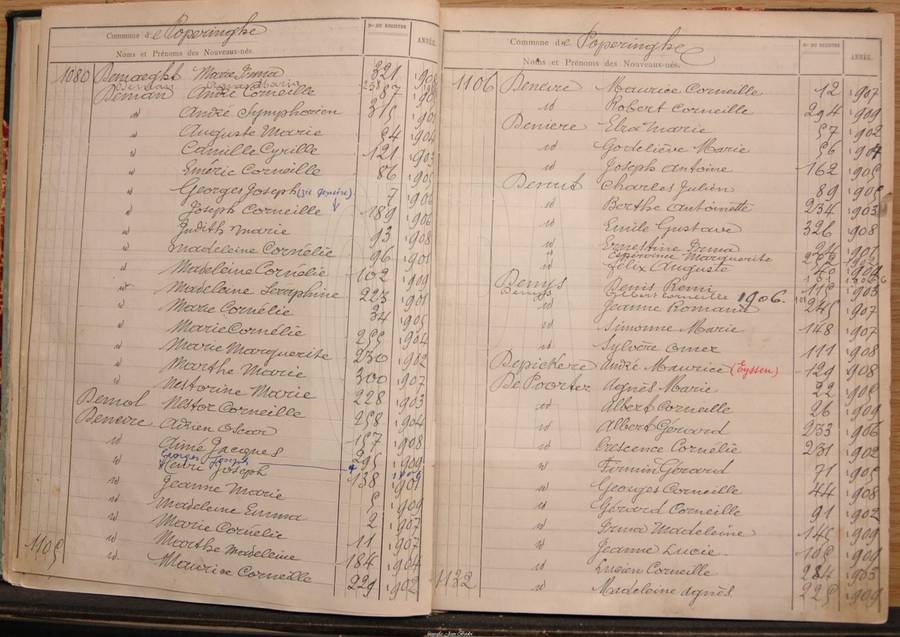 Commune de Poperinghe
Nos DU REGISTRE
ANNÉE
Noms et Prénoms des Nouveaux-nés.
1080 Demaeght Marie Irma 321 1908
Deman André Corneille 87
id André Symphorien 315
id Auguste Marie 54 1904
id Camille Cyrille 121 1903
id Eméric Corneille 86 1905
id Georges Joseph (zie Deneire) 7
id Joseph Corneille 189 1906
id Judith Marie 93 1908
id Madeleine Cornélie 96 1901
id Madeleine Cornélie 102 1909
id Madeleine Seraphine 223 1901
id Marie Cornélie 34 1905
id Marie Cornélie 255 1904
id Marie Marguerite 230 1902
id Marthe Marie 300 1907
id Nestorine Marie 228 1903
Demol Nestor Corneille 258 1904
Deneire Adrien Oscar 157 1908
id Aimé Jacques 295 1909
Georges Joseph
id Henri Joseph 138 1901
id Jeanne Marie 5 1909
id Madeleine Emma 2 1907
id Marie Cornélie 11 1907
id Marthe Madeleine 184 1904
1105 id Maurice Corneille 229 1902
Commune de Poperinghe
Nos DU REGISTRE
ANNÉE
Noms et Prénoms des Nouveaux-nés.
1106 Deneire Maurice Corneille 12 1907
id Robert Corneille 294 1909
Deniere Elza Marie 57 1902
id Godelieve Marie 56 1904
id Joseph Antoine 162 1905
Denut Charles Julien 89 1905
id Berthe Antoinette 234 1903
id Emile Gustave 326 1908
id Ernestine Irma 1901
id Esperance Marguerite
id Félix Auguste 40
Denys Denis Remi 115 1903
Denys Albert Corneille 1906
Jeanne Romanie 245 1907
id Simonne Marie 148 1907
id Sylvère Omer 111 1908
Depickere André Maurice (Eyssen) 129 1908
De Poorter Agnès Marie 22 1905
id Albert Corneille 26 1909
id Albert Gérard 233 1906
id Crescence Cornélie 231 1902
id Firmin Gérard 71 1905
id Georges Corneille 44 1908
id Gérard Corneille 91 1902
id Irma Madeleine 145 1909
id Jeanne Lucie 105
id Lucien Corneille 284 1903
1132 id Madeleine Agnès 225 1909